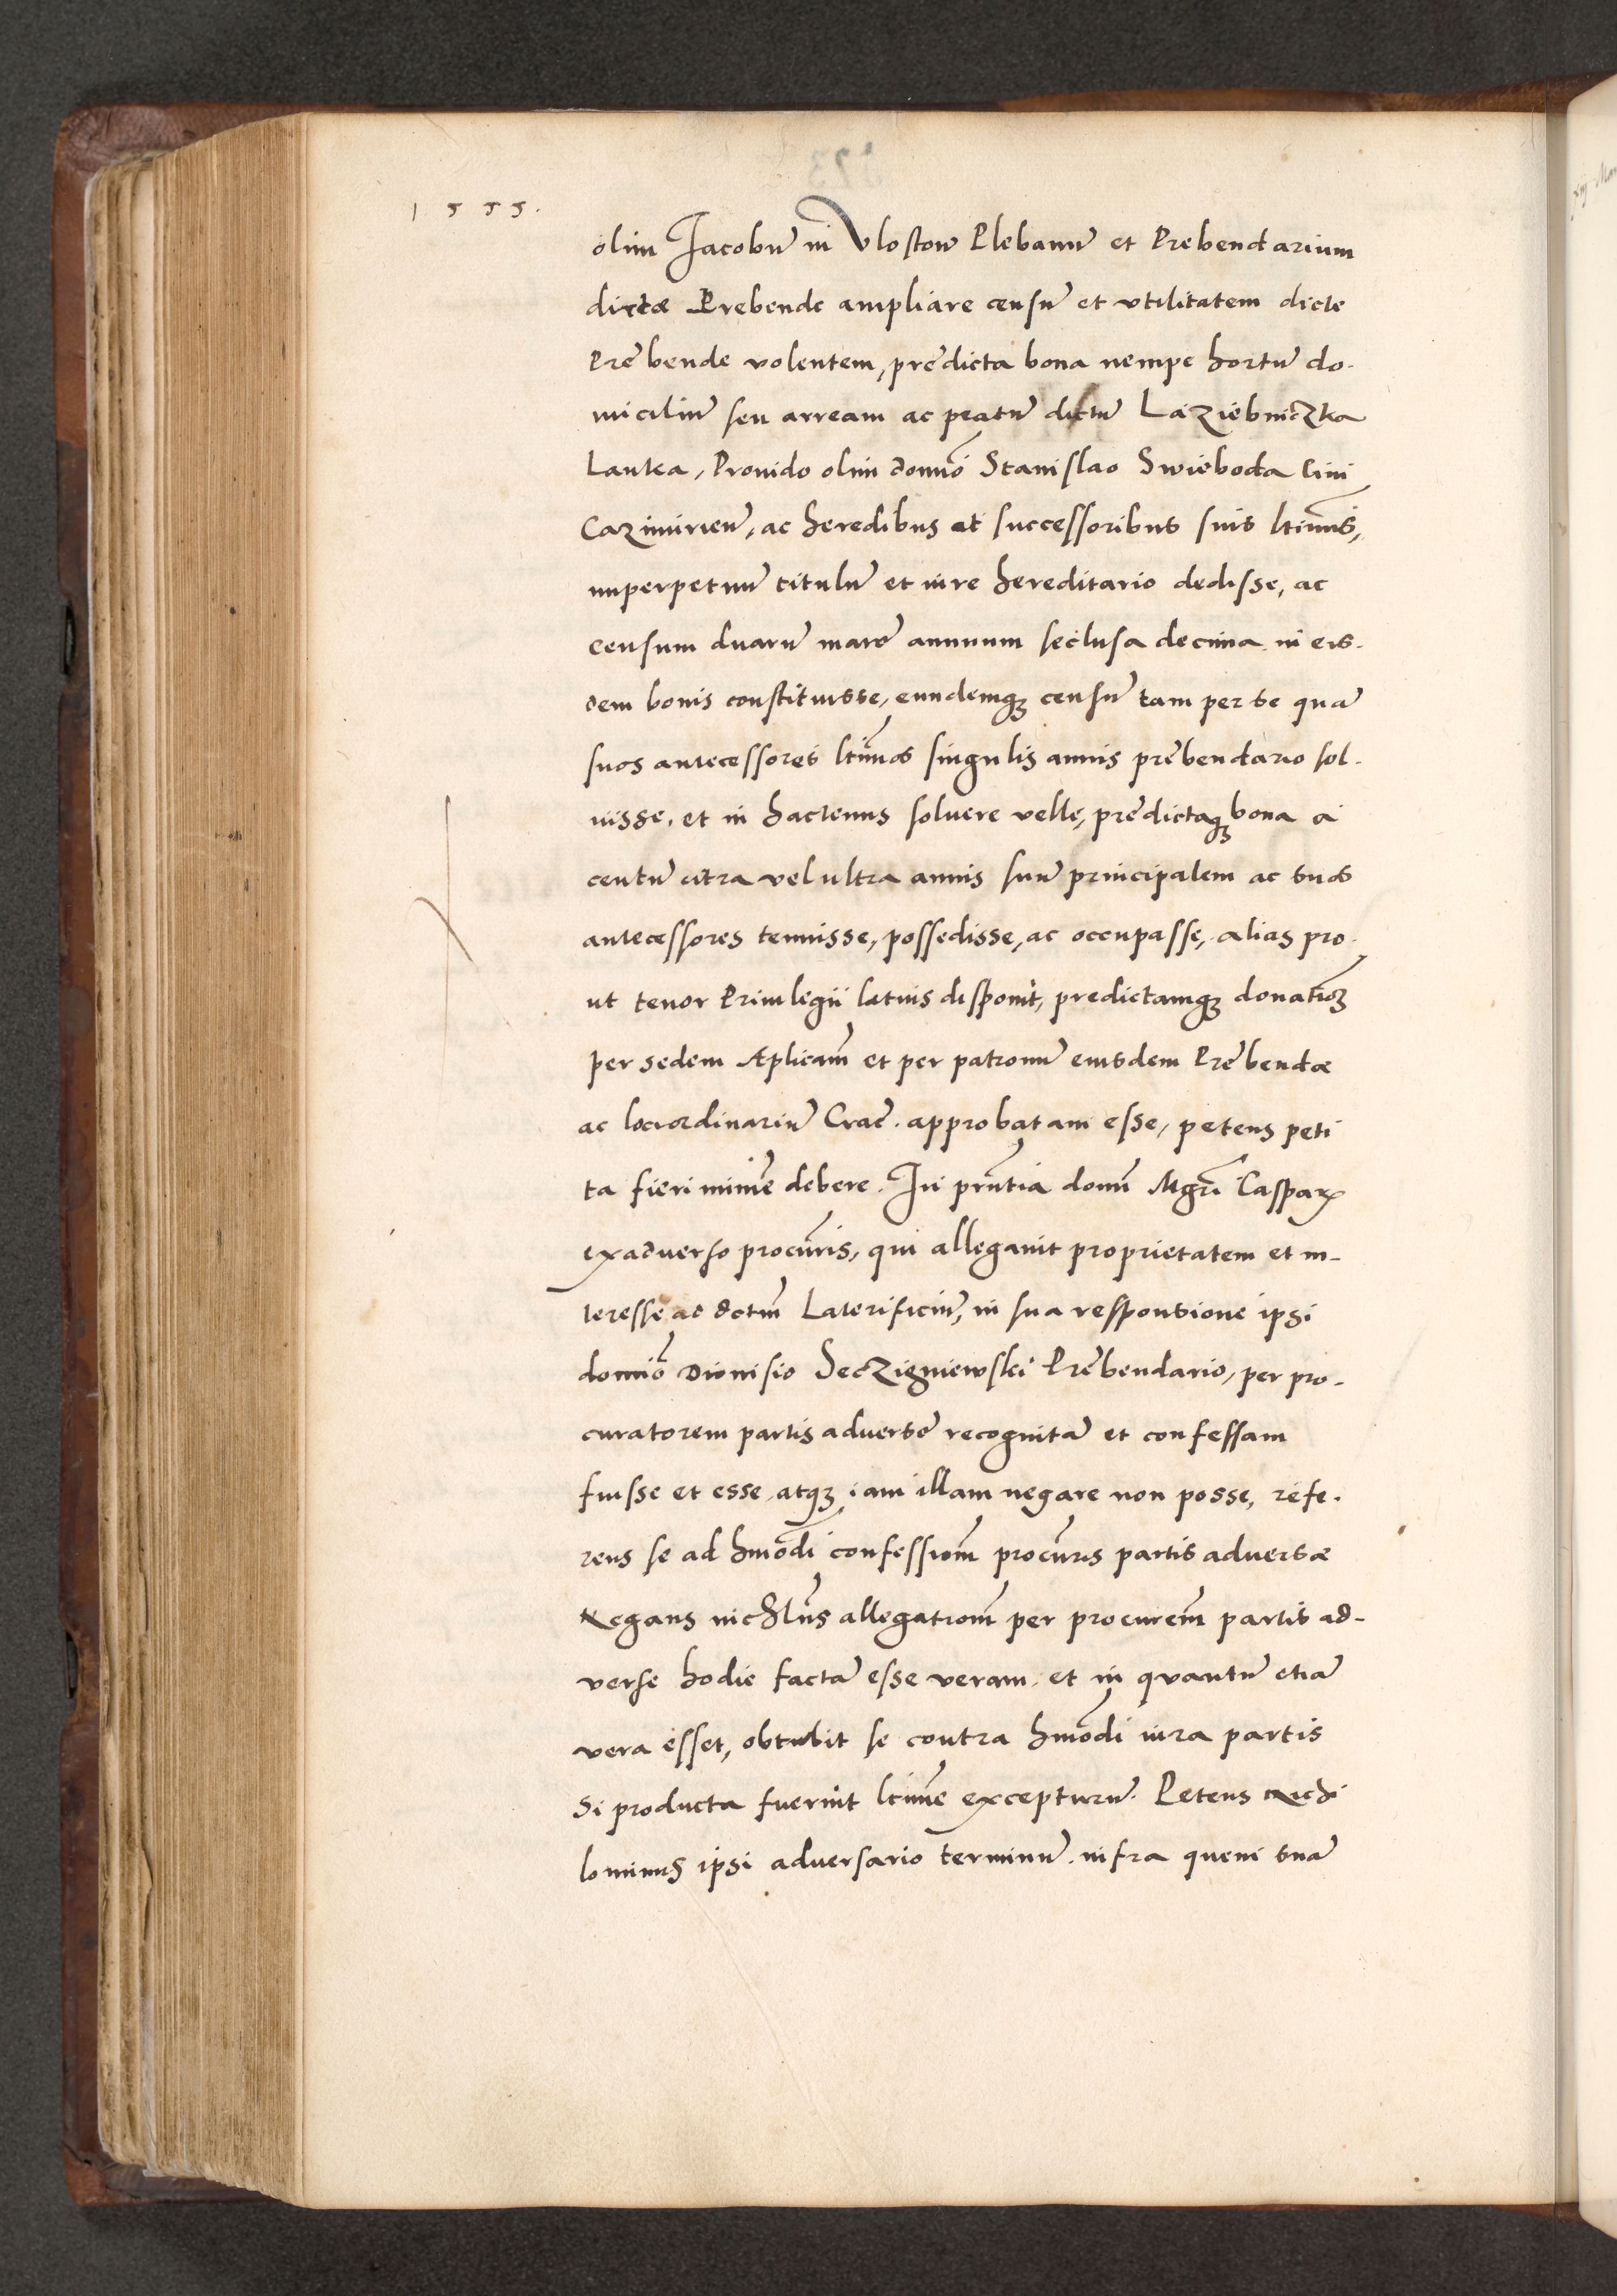 1555.
olim Jacobū in Vlostow Plebanū et Prebendarium
dictæ Prebende ampliare censū et vtilitatem dicte
Prębende volentem, prędicta bona nempe hortū do-
miciliū seu arream ac pratū dictū Laziebniczka
Lanka, Prouido olim domiō Stanislao Swieboda Ciui
Cazimirień, ac heredibus et successoribus suis ltimīs,
imperpetuū titulū et iure hereditario dedisse, ac
censum duarū marc̄ annuum seclusa decima in eis-
dem bonis constituisse, eundemqꝫ censū tam per se quā
suos antecessores ltim̄os singulis annis prębendario sol-
uisse, et in hactenus soluere velle, prędictaqꝫ bona a
centū citra vel ultra annis suū principalem ac suos
antecessores tenuisse, possedisse, ac occupasse, alias pro-
ut tenor Priuilegii latius disponit, predictamqꝫ donatioꝫ
per sedem Aplicam̄ et per patronū eiusdem Prębendæ
ac lociordinariū Crac̄. approbatam esse, petens peti
ta fieri minīe debere. In prn̄tia domī Mgrī Casparis
exaduerso procur̄is, qui allegauit proprietatem et in-
teresse ad dctm̄ Laterificiū, in sua responsione ipsi
domiō Dionisio Seczigniewski Prębendario, per pro-
curatorem partis adversę recognitā et confessam
fuisse et esse, atqꝫ iam illam negare non posse, refe-
rens se ad hmōdi confessionm̄ procur̄is partis aduersæ
Negans nichlm̄s allegationm̄ per procurem̄ partis ad-
verse hodie factā esse veram, et in quantū etiā
vera esset, obtulit se contra hmōdi iura partis
si producta fuerint ltim̄e excepturū. Petens nichi
lominus ipsi adversario terminū, infra quem suā